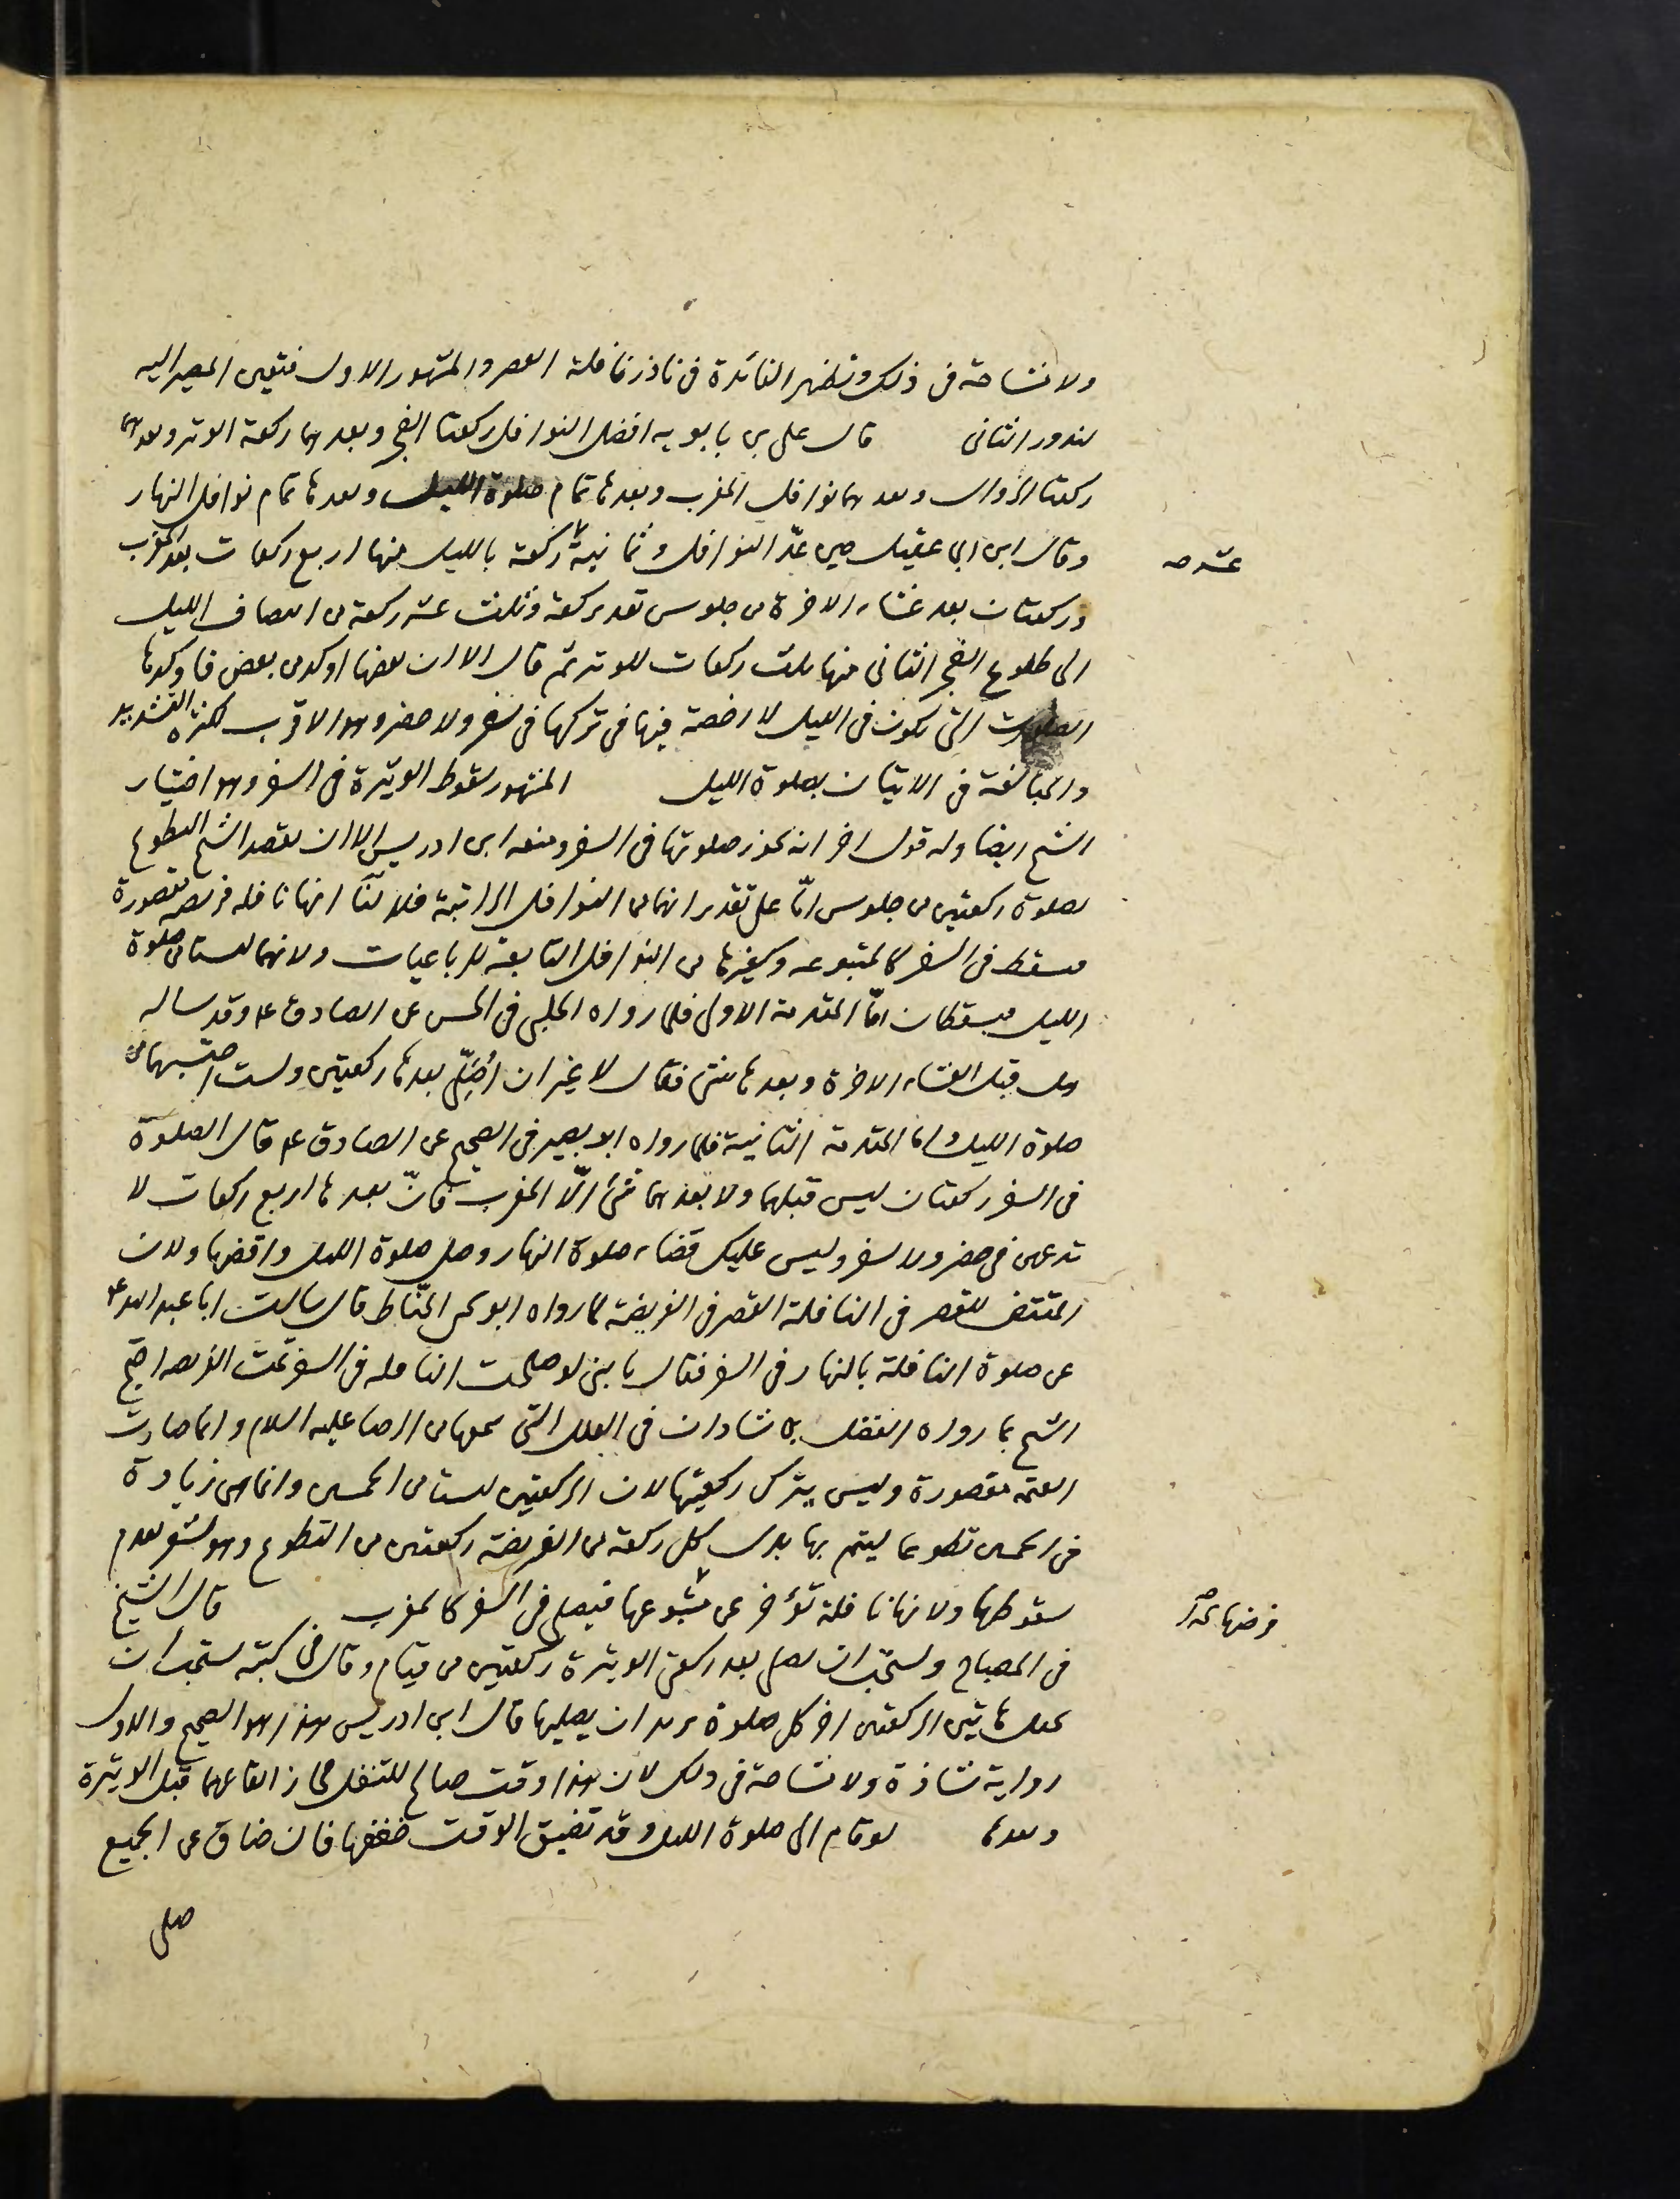 ولا مشاحة فى ذلك وتظهر الفائدة فى ناذر نافلة العصر والمشهور الاول فتعين المصير اليه
لندور الثانى قال على بن بابويه افضل النوافل ركعتا الفجر وبعدهما ركعة الوتر وبعدهما
ركعتا الزوال وبعدهما نوافل المغرب وبعدها تمام صلوة الليل وبعدها تمام نوافل النهار
وقال ابن ابى عقيل حين عدّ النوافل وثمانية ركعة بالليل منها اربع ركعات بعد المغرب
عشرة صح
وركعتان بعد عشاء الاخرة من جلوس تعد بركعة وثلث عشر ركعة من انتصاف الليل
الى طلوع الفجر الثانى منها ثلث ركعات للوتر ثم قال الا ان بعضها اوكد من بعض فاوكدها
الصلوات التى تكون فى الليل لا رخصة فيها فى تركها فى سفر ولا حضر وهو الاقرب لكثرة التشديد
والمبالغة فى الاتيان بصلوة الليل المشهور سقوط الوتيرة فى السفر وهو اختيار
الشيخ ايضا وله قول اخر انه يجوز صلوتها فى السفر ومنعه ابن ادريس الا ان يقصد الشيخ التطوع
بصلوة ركعتين من جلوس امّا على تقدير انهما من النوافل الراتبة فلا لنا انها نافلة فريضة مقصورة
فسقط فى السفر كالمتبوعة وكغيرها من النوافل التابعة للرباعيات ولانهما ليستا من صلوة
الليل فيسقطان امّا المقدمة الاولى فلما رواه الحلبى فى الحسن عن الصادق ع وقد ساله
هل قبل العشاء الاخرة وبعدها شئ فقال لا غير ان اُصَلّى بعدها ركعتين ولست احتسبهما من
صلوة الليل واما المقدمة الثانية فلما رواه ابو بصير فى الصحيح عن الصادق ع قال الصلوة
فى السفر ركعتان ليس قبلهما ولا بعدهما شئ الّا المغرب فانّ بعدها اربع ركعات لا
تدعهن فى حضر ولا سفر وليس عليك قضاء صلوة النهار وصل صلوة الليل واقضها ولان
المقتضى للقصر فى النافلة القصر فى الفريضة لما رواه ابو يحيى الحنّاط قال سالت ابا عبد الله ع
عن صلوة النافلة بالنهار فى السفر فقال يا بنى لو صلحت النافلة فى السفر تمت الفريضة احتج
الشيخ بما رواه الفضل بن شاذان فى العلل التى سمعها من الرضا عليه السلام وانما صارت
العتمة مقصورة وليس يترك ركعتيها لان الركعتين ليستا من الخمسين وانما هى زيادة
فى الخمسين تطوعا ليتم بها بدل كل ركعة من الفريضة ركعتين من التطوع وهو يشعر بعدم
سقوطها ولانها نافلة تؤخر عن متبوعها فيصلى فى السفر كالمغرب قال الشيخ
فى المصباح ويستحب ان يصلى بعد ركعتى الوتيرة ركعتين من قيام وقال فى كتبه يستحب ان
يجعل هاتين الركعتين اخر كل صلوة يريد ان يصليها قال ابن ادريس هذا هو الصحيح والاول
رواية شاذة ولا مشاحة فى ذلك لان هذا وقت صالح للتنفل فجاز ايقاعهما قبل الوتيرة
وبعدها لو قام الى صلوة الليل وقد تضيق الوقت خففها فان ضاق عن الجميع
صلى